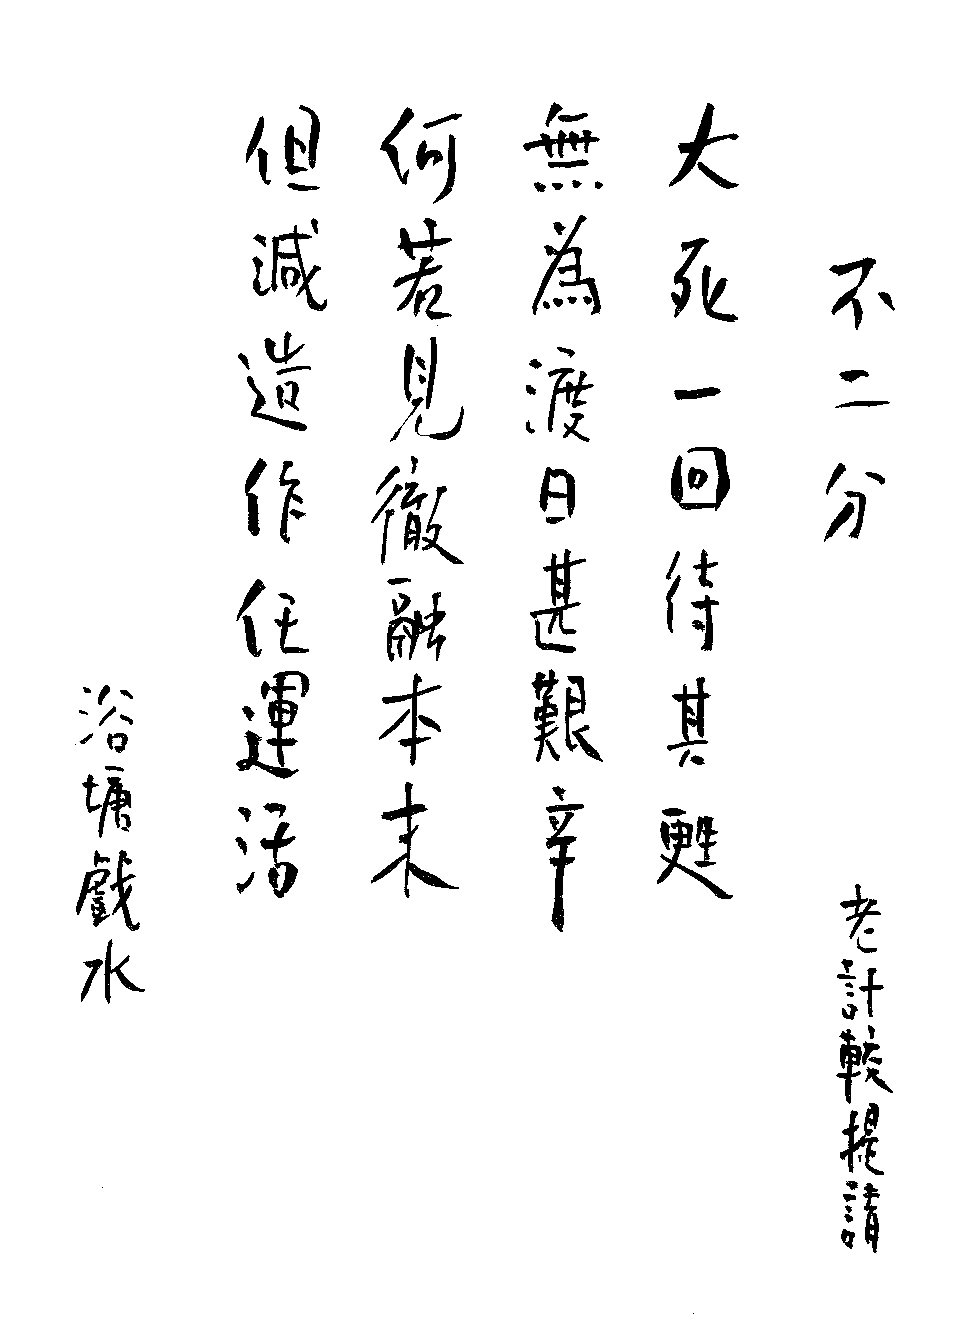 不二分
老計較提請
大死一回待其甦
無為渡日甚艱辛
何若見徹融本末
但減造作任運活
浴塘戲水